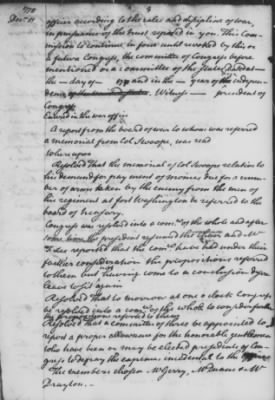 1778
Decr. 11
3
officer according to the rules and discipline of war,
in pursuance of the trust reposed in you. This Com-
mission to continue in force until revoked by this or
a future Congress, the committee of Congress before
mentioned or a committee of the states. Dated at
the — day of — 177 and in the — year of
Witness — president of
Congress
Entered in the war office
A report from the board of war to whom was referred
a memorial from col. Swoope, was read
whereupon
Resolved that the memorial of col Swoope relative to
his demand for payment of monies due for a num-
ber of arms taken by the enemy from the men of
his regiment at fort Washington be referred to the
board of treasury.
Congress was resolved into a comee. of the whole and after
some time the president resumed the chair and Mr
reported that the comee. have had under their
farther consideration the propositions referred
to them but having come to a conclusion desire
leave to sit again
Resolved that to morrow at one o clock Congress
be resolved into a comee. of the whole to consider farther
the propositions referred to them
Resolved that a committee of three be appointed to
report a proper allowance for the honorable gentlemen
who have been or may be elected presidents of Con-
gress to defray the expences incidental to the office
The members chosen Mr Gerry, Mr Duane & Mr
Drayton.